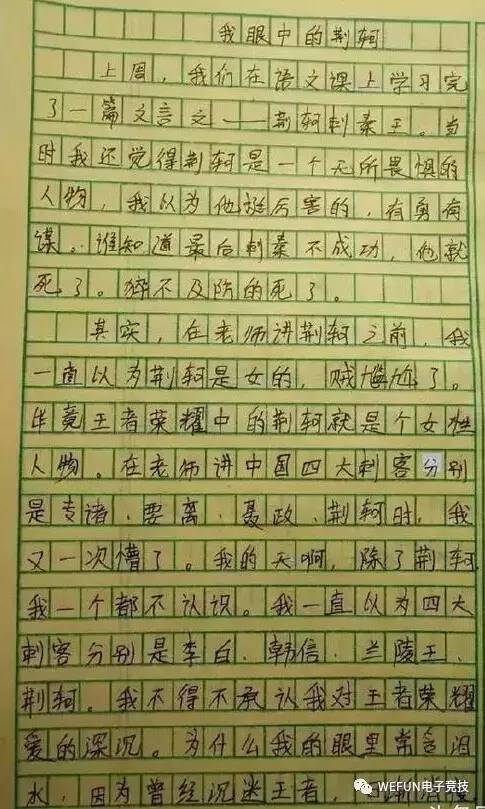 我眼中的荆轲
上周，我们在语文课上学习完
了一篇文言文——荆轲刺秦王。当
时我还觉得荆轲是一个无所畏惧的
人物，我以为他挺厉害的，有勇有
谋。谁知道最后刺秦不成功，他就
死了。猝不及防的死了。
其实，在老师讲荆轲之前，我
一直以为荆轲是女的，贼尴尬了。
毕竟王者荣耀中的荆轲就是个女性
人物。在老师讲中国四大刺客分别
是专诸、要离、聂政、荆轲时，我
又一次懵了。我的天啊，除了荆轲，
我一个都不认识。我一直以为四大
刺客分别是李白、韩信、兰陵王、
荆轲。我不得不承认我对王者荣耀
爱的深沉。为什么我的眼里常含泪
水，因为曾经沉迷王者，
WEFUN电子竞技